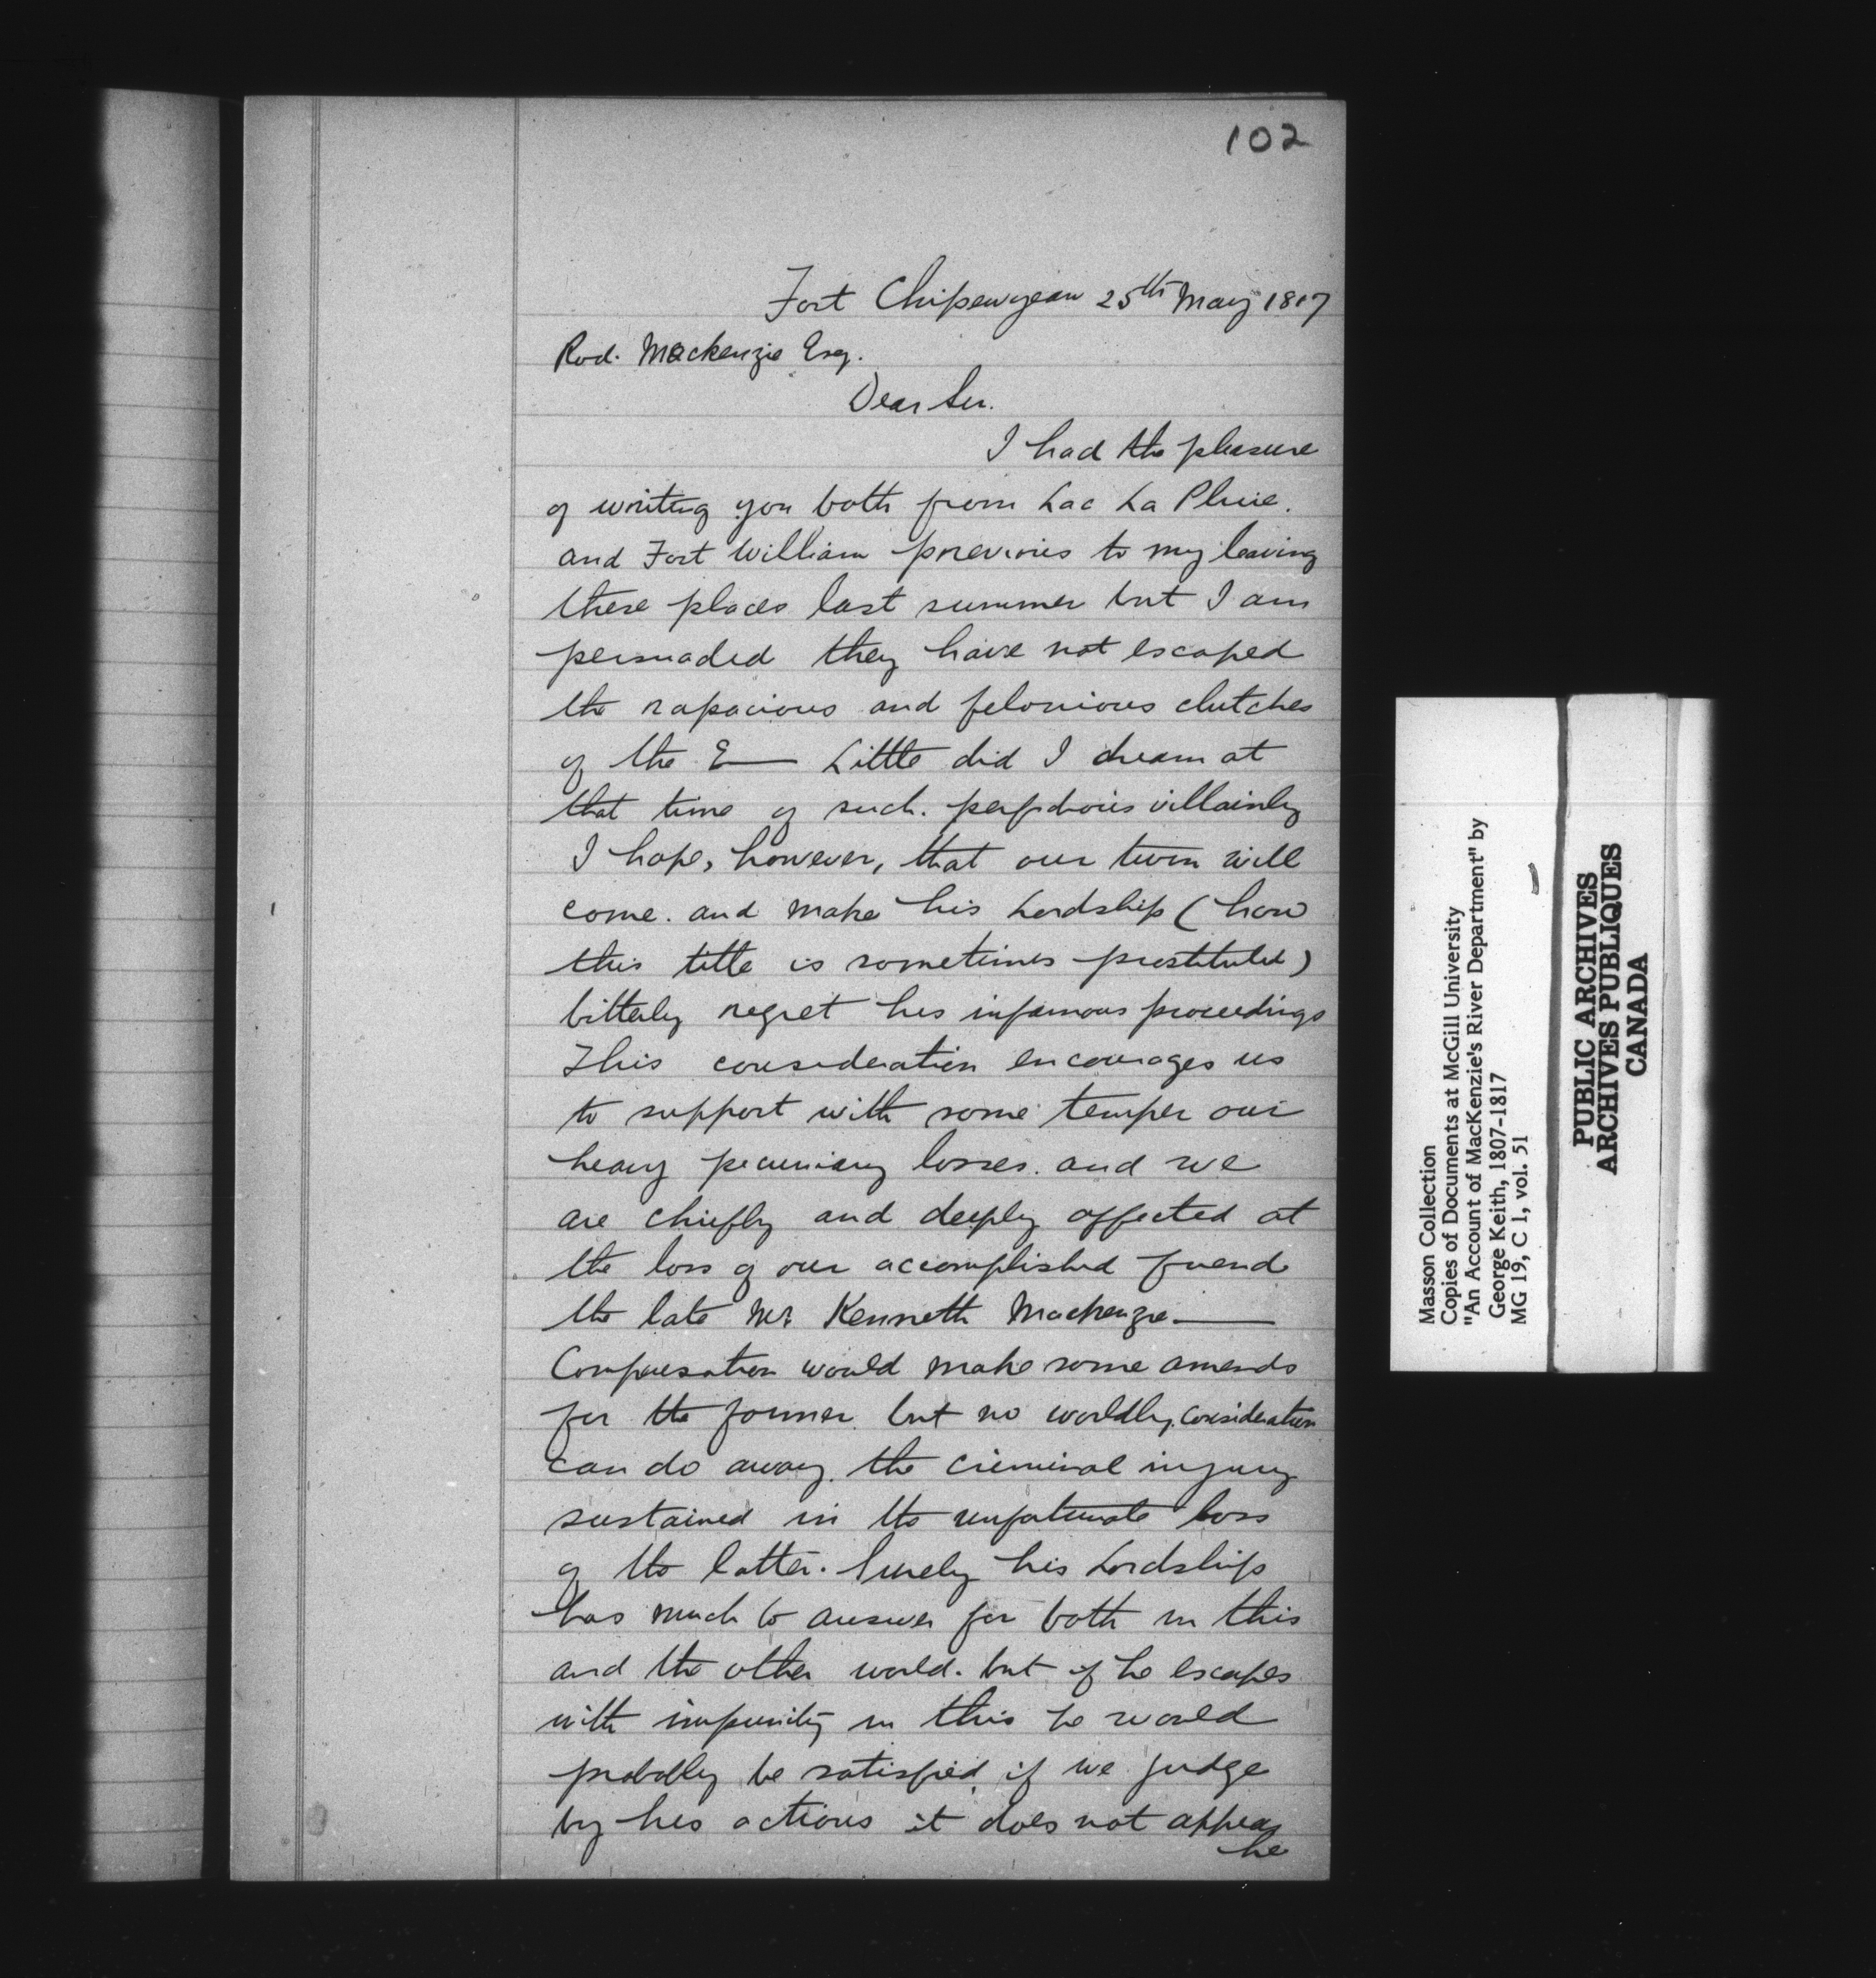 102
Fort Chipewyean 25th May 1817
Rod. Mackenzie Esq.
Dear Sir.
I had the pleasure
of writing you both from Lac La Pluie.
and Fort William previous to my leaving
these places last summer but I am
persuaded they have not escaped
the rapacious and felonious clutches
of the E—— Little did I dream at
that time of such. perfidious villainly
I hope, however, that our turn will
come. and make his Lordship (how
this title is sometimes prostituted)
bitterly regret his infamous proceedings
This consideration encourages us
to support with some temper our
heavy pecuniary losses. and we
are chiefly and deeply affected at
the loss of our accomplished friend
the late Mr. Kenneth Mackenzie.——
Compensation would make some amends
for the former but no worldly consideration
can do away. the criminal injury
sustained in the unfortunate loss
of the latter. Surely his Lordship
has much to answer for both in this
and the other world. but if he escapes
with impunity in this he would
probably be satisfied if we judge
by his actions it does not appear
he
Masson Collection
Copies of Documents at McGill University
"An Account of MacKenzie's River Department" by
George Keith, 1807-1817
MG 19, C 1, vol. 51
PUBLIC ARCHIVES
ARCHIVES PUBLIQUES
CANADA